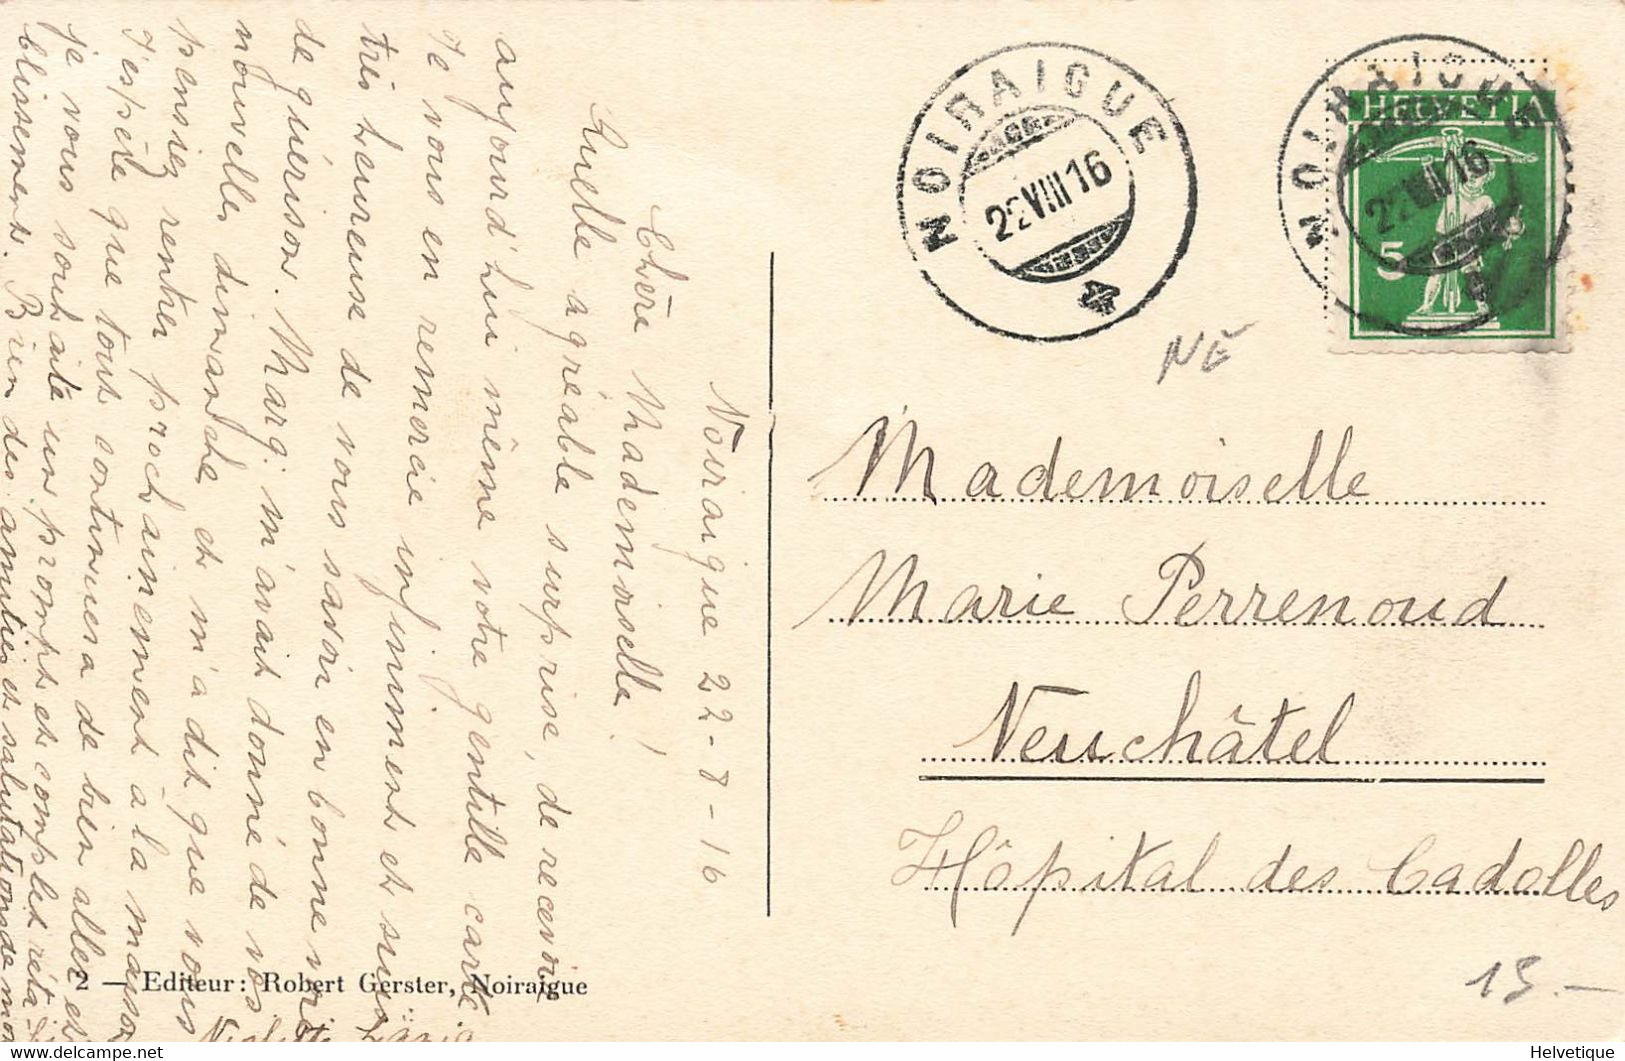 Noiraigue 22-8-16
Chère Mademoiselle!
Quelle agréable surprise, de recevoir
aujourd'hui même votre gentille carte
Je vous en remercie infiniment et suis
très heureuse de vous savoir en bonne voie
de guérison. Marg. m'avait donné de vos
nouvelles dimanche et m'a dit que vous
pensiez rentrer prochainement à la maison
J'espère que tout continuera de bien aller et
je vous souhaite un prompt et complet réta-
blissement. Bien des amitiés et salutations de mon
NOIRAIGUE
22 VIII 16
NOIRAIGUE
22 VIII 16
HELVETIA
5
NE
Mademoiselle
Marie Perrenoud
Neuchâtel
Hôpital des Cadolles
15.—
2 — Editeur: Robert Gerster, Noiraigue
Helvetique